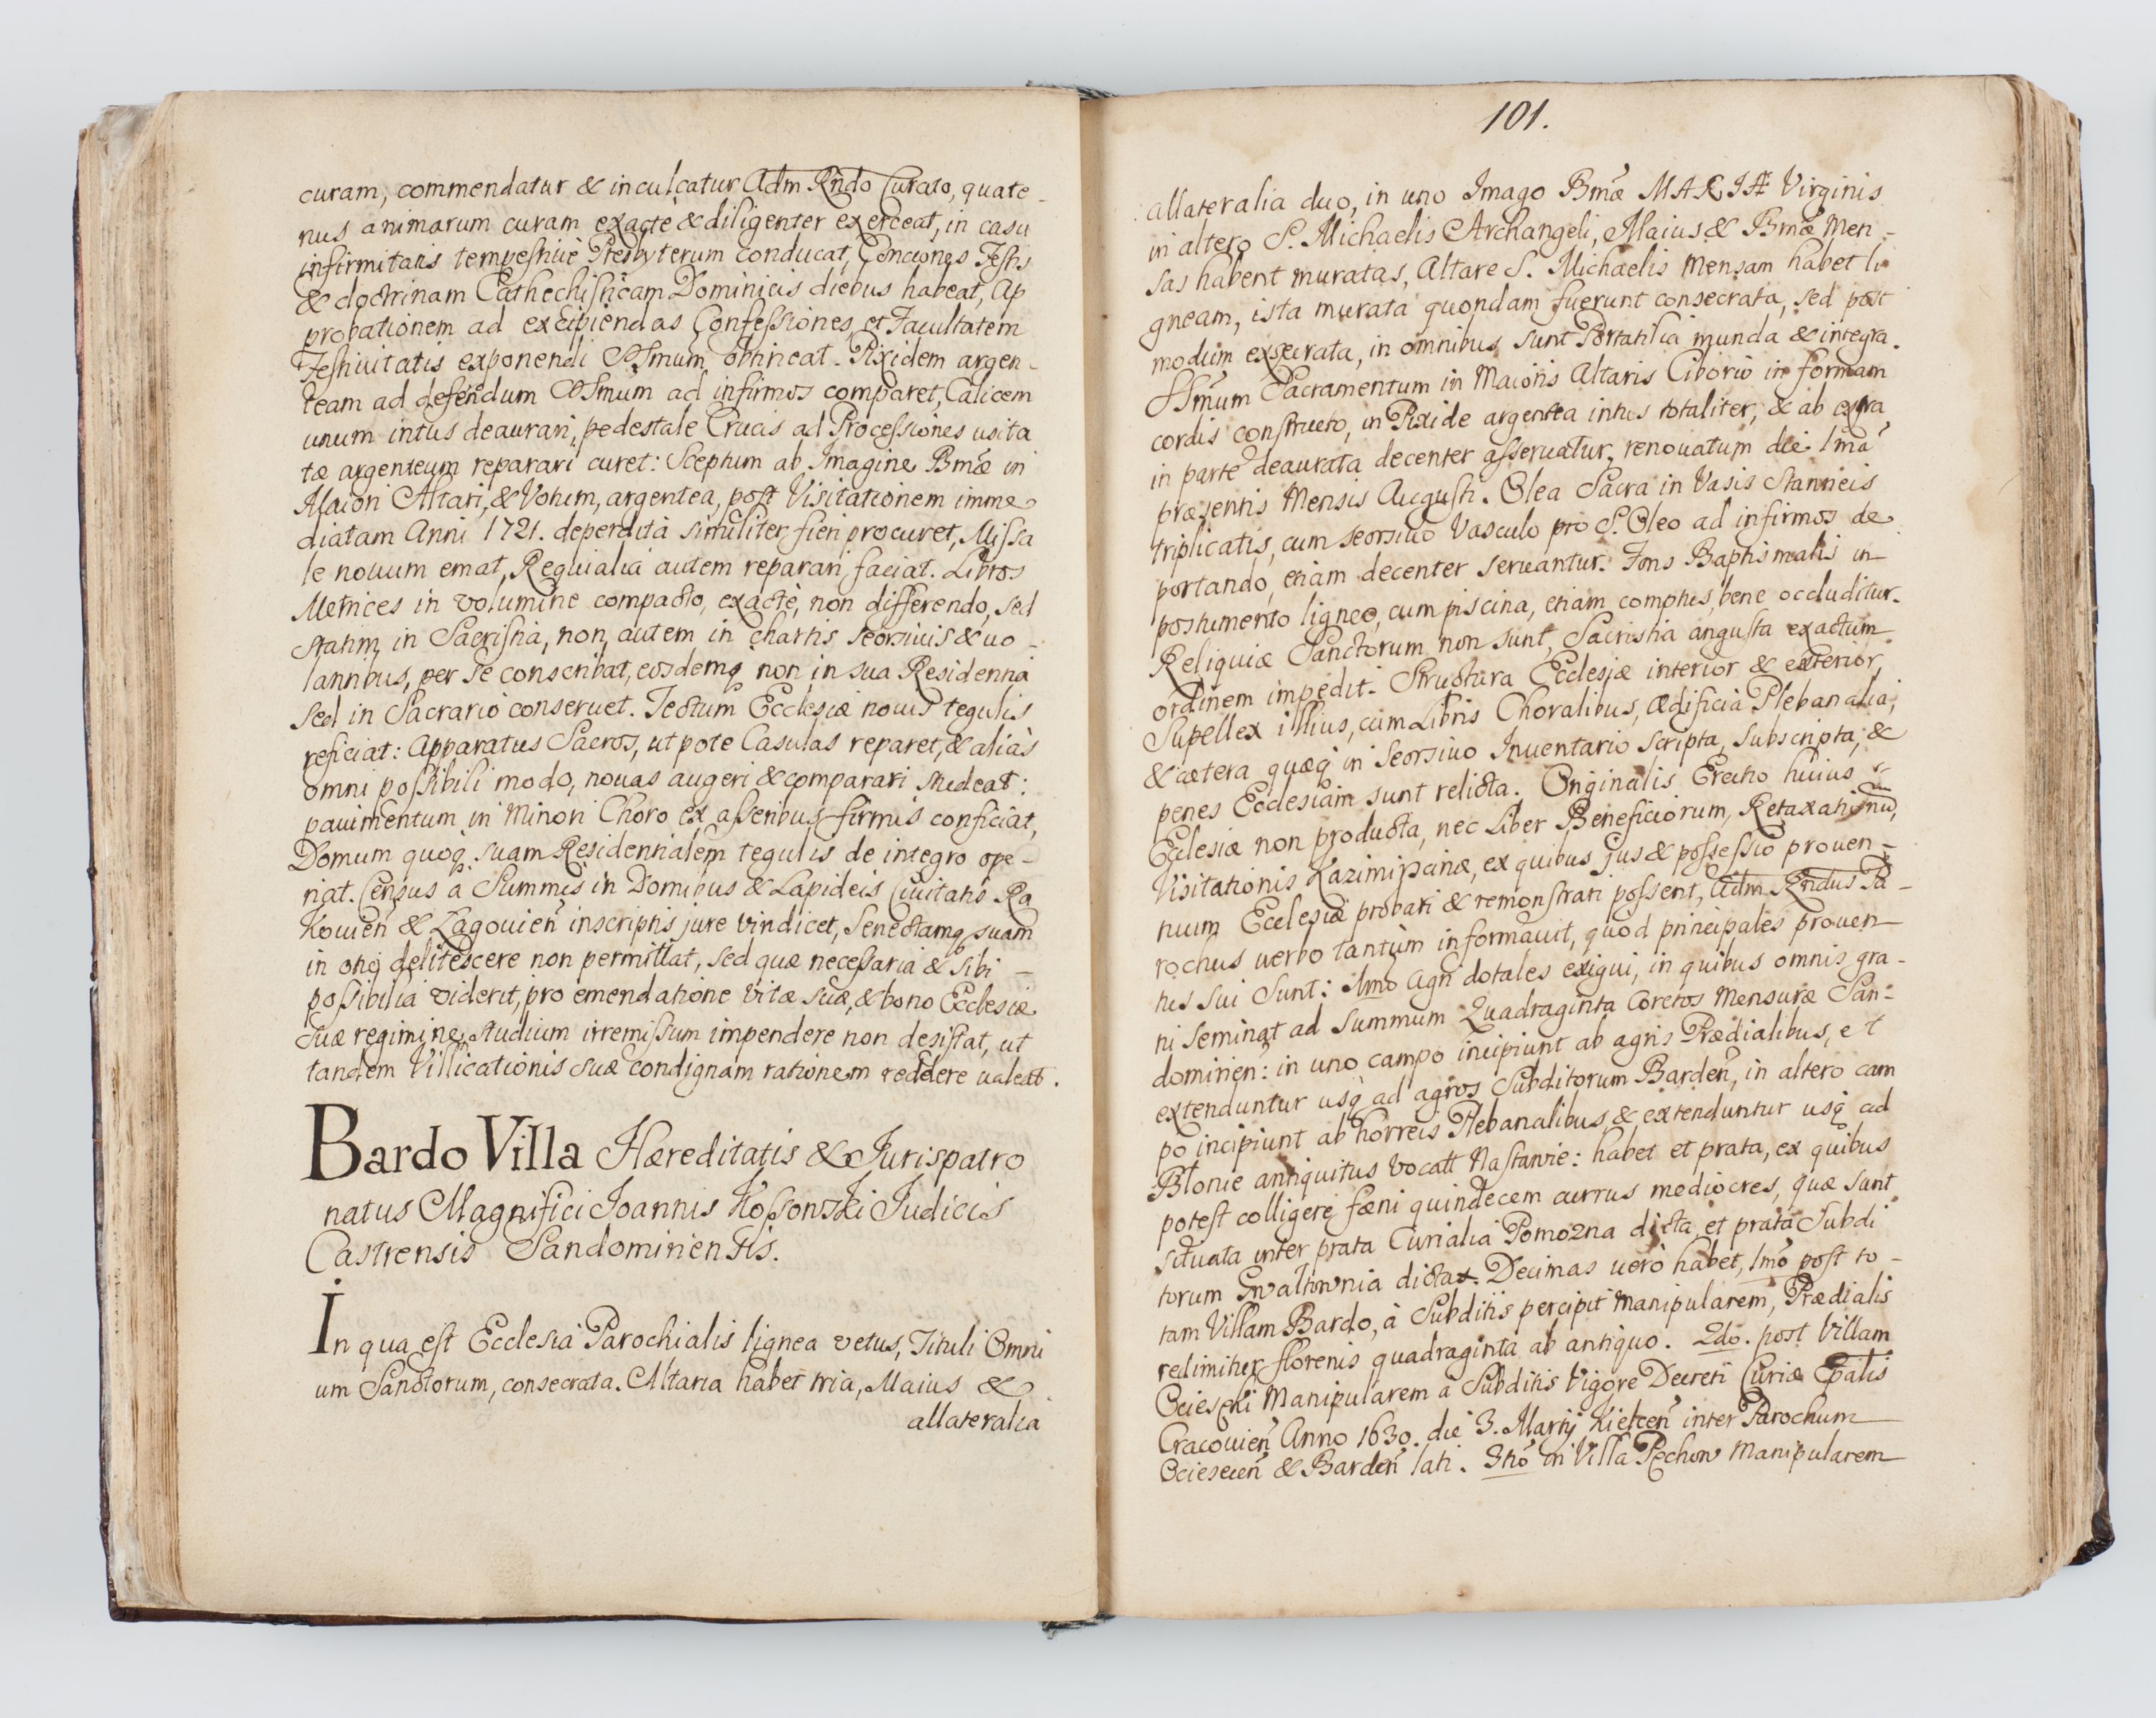 curam, commendatur & inculcatur Adm Rndo Curato, quate-
nus animarum curam exactè & diligenter exerceat, in casu
infirmitatis tempestivè Presbyterum conducat, Conciones Festis
& doctrinam Cathechisticam Dominicis diebus habeat, Ap
probationem ad excipiendas Confessiones, et Facultatem
Festivitatis exponendi SSmum obtineat. Pixidem argen-
team ad deferendum SSmum ad infirmos comparet, Calicem
unum intus deaurari, pedestale Crucis ad Processiones usita
tæ argenteum reparari curet: Sceptrum ab Imagine Bmæ in
Maiori Altari, & Votum, argentea, post Visitationem imme
diatam Anni 1721. deperdita similiter fieri procuret, Missa
le novum emat, Requialia autem reparari faciat. Libros
Metrices in volumine compacto, exactè, non differendo, sed
statim in Sacristia, non autem in chartis seorsivis & vo-
lantibus, per se conscribat, eosdemq non in sua Residentia
sed in Sacrario conservet. Tectum Ecclesiæ novis tegulis
reficiat: Apparatus Sacros, ut pote Casulas reparet, & aliàs
omni possibili modo, novas augeri & comparari studeat:
pavimentum in Minori Choro ex asseribus firmis conficiat,
Domum quoq suam Residentialem tegulis de integro ope-
riat. Census à Summis in Domibus & Lapideis Civitatis Ra
kovien & Lagovien inscriptis jure vindicet, Senectamq suam
in otio delitescere non permittat, sed quæ necessaria & sibi
possibilia viderit, pro emendatione vitæ suæ, & bono Ecclesiæ
suæ regimine, studium irremissum impendere non desistat, ut
tandem Villicationis suæ condignam rationem reddere valeat.
Bardo Villa Hæreditatis & Jurispatro
natus Magnifici Joannis Kossowski Judicis
Castrensis Sandomiriensis.
In qua est Ecclesia Parochialis lignea vetus, Tituli Omni
um Sanctorum, consecrata. Altaria habet tria, Maius &
allateralia
101.
allateralia duo, in uno Imago Bmæ MARIÆ Virginis
in altero S. Michaelis Archangeli, Maius & Bmæ Men-
sas habent muratas, Altare S. Michaelis Mensam habet li
gneam, ista murata quondam fuerunt consecrata, sed post
modum exsecrata, in omnibus sunt Portatilia munda & integra.
SSmum Sacramentum in Maioris Altaris Ciborio in formam
cordis constructo, in Pixide argentea intus totaliter, & ab extra
in parte deaurata decenter asservatur, renovatum die 1ma
præsentis Mensis Augusti. Olea Sacra in Vasis Stanneis
triplicatis, cum seorsivo Vasculo pro S. Oleo ad infirmos de
portando, etiam decenter servantur. Fons Baptismalis in
postumento ligneo, cum piscina, etiam comptus, bene occluditur.
Reliquiæ Sanctorum non sunt, Sacristia angusta exactum
ordinem impedit. Structura Ecclesiæ interior & exterior,
Supellex illius, cum Libris Choralibus, Ædificia Plebanalia,
& cætera quæq in seorsivo Inventario scripta, subscripta, &
penes Ecclesiam sunt relicta. Originalis Erectio huius
Ecclesiæ non producta, nec Liber Beneficiorum, Retaxationũ,
Visitationis Kazimirscianæ, ex quibus jus & possessio proven-
tuum Ecclesiæ probari & remonstrari possent, Adm Rndus Pa-
rochus verbo tantùm informavit, quod principales proven
tus sui sunt: 1mo Agri dotales exigui, in quibus omnis gra-
ni seminat ad summum Quadraginta Coretos Mensuræ San-
domirien: in uno campo incipiunt ab agris Prædialibus, et
extenduntur usq ad agros Subditorum Barden, in altero cam
po incipiunt ab horreis Plebanalibus & extenduntur usq ad
Blonie antiquitus vocatt Nastawie: habet et prata, ex quibus
potest colligere fæni quindecem currus mediocres, quæ sunt
situata inter prata Curialia Pomozna dicta, et prata Subdi
torum Gwaltownia dicta. Decimas verò habet, 1mo post to-
tam Villam Bardo, à Subditis percipit manipularem, Prædialis
redimitur florenis quadraginta ab antiquo. 2do. post Villam
Ocieseki Manipularem a Subditis Vigore Decreti Curiæ Epalis
Cracovien Anno 1630. die 3. Martij Kielcen inter Parochum
Ociesecen & Barden lati. 3tio in Villa Pechow Manipularem